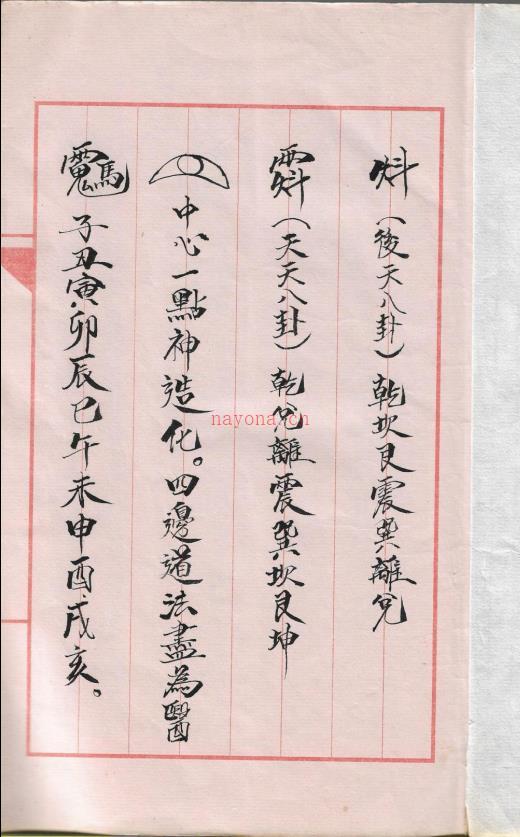 （後天八卦）乾坎艮震巽離兌
（天天八卦）乾兌離震巽坎艮坤
中心一點神造化。四邊道法盡為醫
子丑寅卯辰巳午未申酉戌亥。
nayona.cn